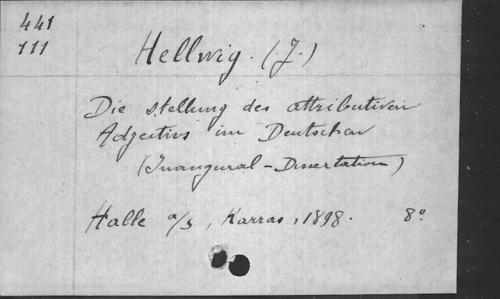 441
111
Hellwig. (J.)
Die stellung des attributiven
Adjectivs im Deutschen
(Inaugural-Dissertation)
Halle a/S, Karras, 1898. 8°